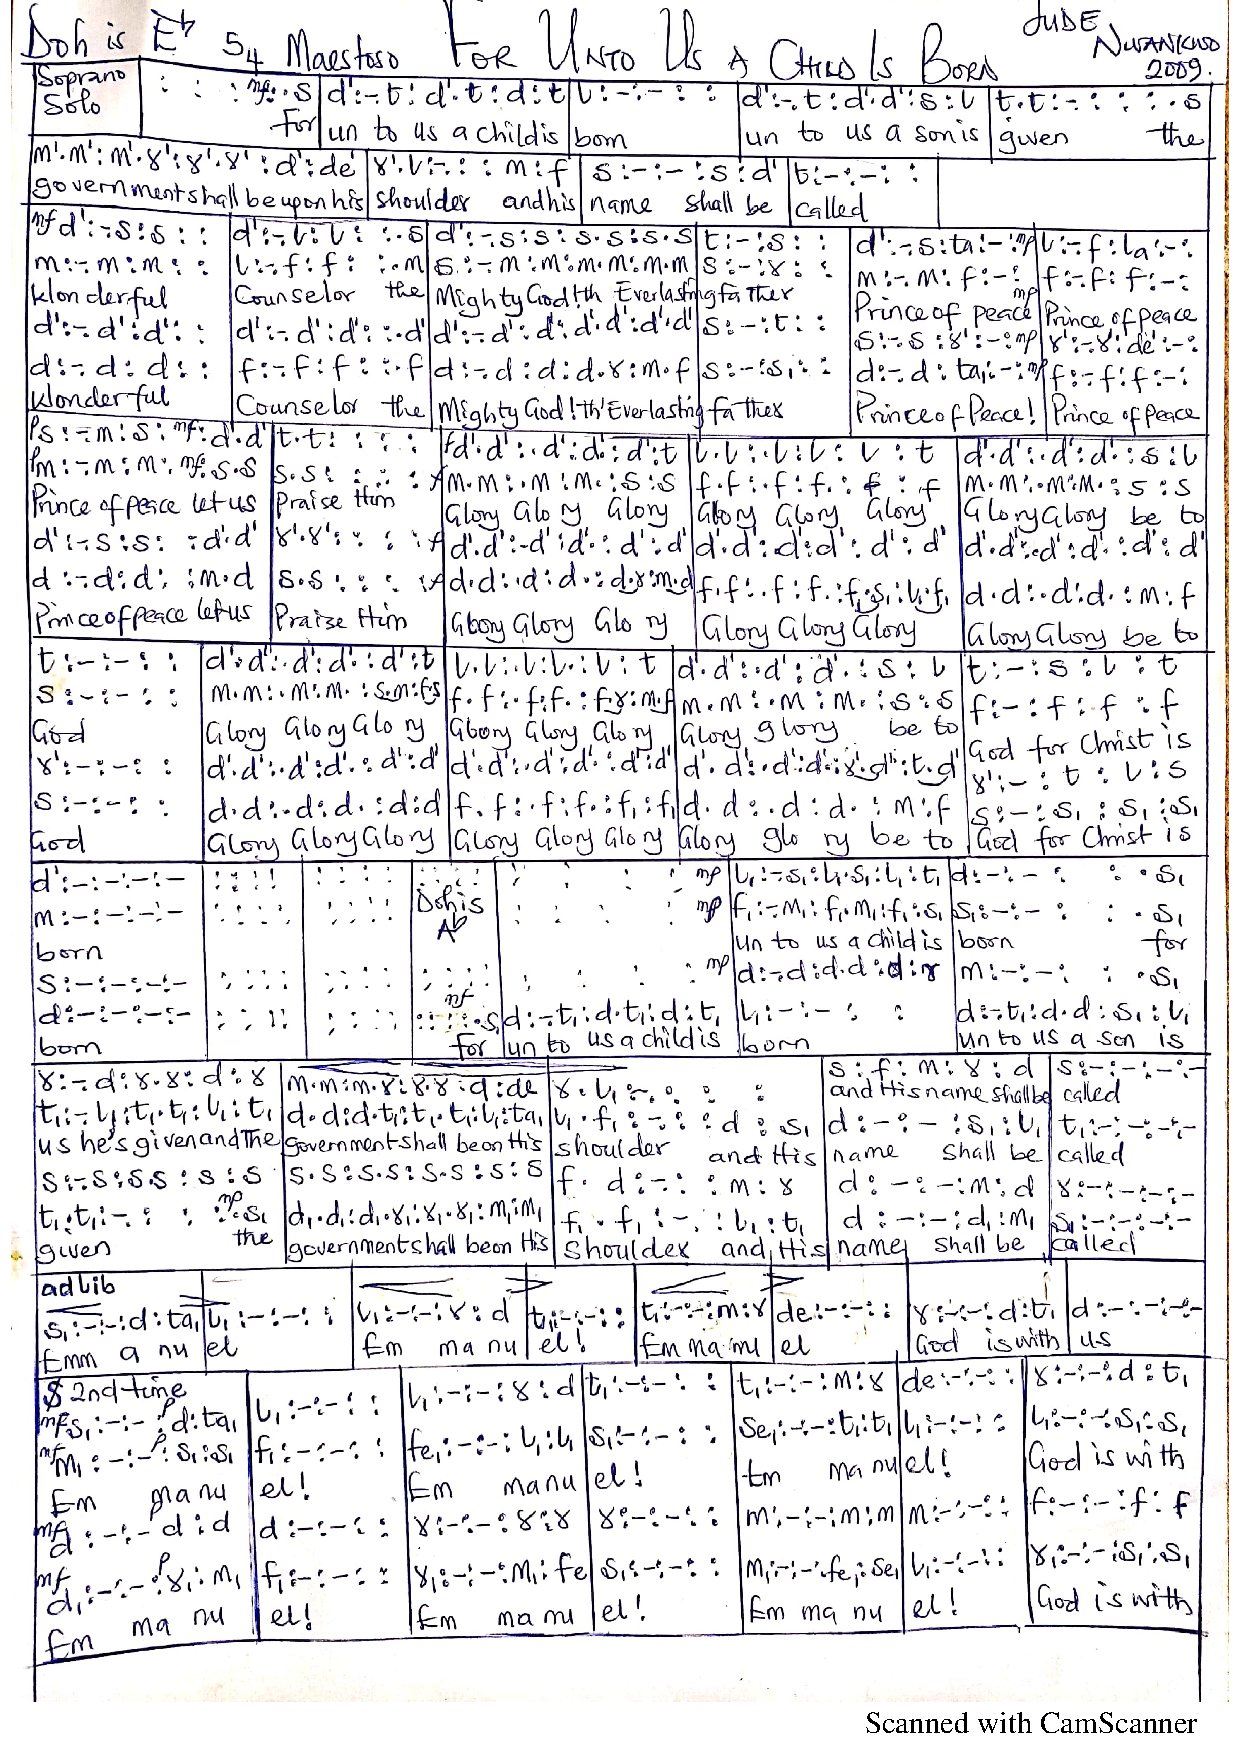 Doh is E♭ 5/4 Maestoso FOR UNTO US A CHILD IS BORN JUDE NWANKWO 2009.
Soprano Solo
: : : mf: . s | d':-.t: d'.t: d: t | l: -: - : : | d':-.t: d'.d': s: l | t.t: - : : : . s
For un to us a child is born un to us a son is given the
m'.m': m'.r': r'.r': d': de' | r'.l: -: : m: f | s: -: -: s: d' | t: -: -: :
government shall be upon his shoulder and his name shall be called
mf d':-.s: s: : | d':-.l: l: : .s | d':-.s: s: s.s: s.s | t: -: s: : | d':-.s: ta: -: mp | l:-.f: la: -:
m:-.m: m: : | l:-.f: f: : .m | s:-.m: m: m.m: m.m | s: -: r: : | m:-.m: f: -: | f:-.f: f: -:
Wonderful Counselor the Mighty God! th' Everlasting father Prince of peace Prince of peace
d':-.d': d': : | d':-.d': d': : .d' | d':-.d': d': d'.d': d'.d' | s: -: t: : | s:-.s: r': -: mp | r':-.r': de': -:
d:-.d: d: : | f:-.f: f: : .f | d:-.d: d: d.r: m.f | s: -: s₁: : | d:-.d: ta₁: -: mp | f:-.f: f: -:
Wonderful Counselor the Mighty God! th' Everlasting father Prince of Peace! Prince of peace
p s:-.m: s: mf: d'.d' | t.t: : : : | f d'.d': .d': d'. : d': t | l.l: .l: l. : l: t | d'.d': .d': d'. : s: l
p m:-.m: m: mf: s.s | s.s: : : : f | m.m: .m: m. : s: s | f.f: .f: f. : f: f | m.m: .m: m. : s: s
Prince of peace let us Praise Him Glory Glo ry Glory Glory Glory Glory Glory Glory be to
d':-.s: s: : d'.d' | r'.r': : : : f | d'.d': .d': d'. : d': d' | d'.d': .d': d'. : d': d' | d'.d': .d': d'. : d': d'
d:-.d: d: : m.d | s.s: : : : f | d.d: .d: d. : d.r: m.d | f.f: .f: f. : f₁.s₁: l₁.f₁ | d.d: .d: d. : m: f
Prince of peace let us Praise Him Glory Glory Glo ry Glory Glory Glory Glory Glory be to
t: -: -: : | d'.d': .d': d'. : d': t | l.l: .l: l. : l: t | d'.d': .d': d'. : s: l | t: -: s: l: t
s: -: -: : | m.m: .m: m. : s.m: f.s | f.f: .f: f. : f.r: m.f | m.m: .m: m. : s: s | f: -: f: f: f
God Glory Glory Glo ry Glory Glory Glo ry Glory glory be to God for Christ is
r': -: -: : | d'.d': .d': d'. : d': d' | d'.d': .d': d'. : d': d' | d'.d': .d': d'. : r'.d': t.d' | r': -: t: l: s
s: -: -: : | d.d: .d: d. : d: d | f.f: .f: f. : f₁: f₁ | d.d: .d: d. : m: f | s: -: s₁: s₁: s₁
God Glory Glory Glory Glory Glory Glory Glory glo ry be to God for Christ is
d': -: -: -: - | : : : : | : : : : | : : : : | : : : : mp | l₁:-.s₁: l₁.s₁: l₁: t₁ | d: -: - : : . s₁
m: -: -: -: - | : : : : | : : : : | Doh is A♭ | : : : : mp | f₁:-.m₁: f₁.m₁: f₁: s₁ | s₁: -: - : : . s₁
born un to us a child is born for
s: -: -: -: - | : : : : | : : : : | : : : : | : : : : mp | d:-.d: d.d: d: r | m: -: - : : . s₁
d: -: -: -: - | : : : : | : : : : | mf : : : : .s₁ | d:-.t₁: d.t₁: d: t₁ | l₁: -: - : : | d:-.t₁: d.d: s₁: l₁
born For un to us a child is born un to us a son is
r:-.d: r.r: d: r | m.m: m.r: r.r: d: de | r.l₁: -. : : : | s: f: m: r: d | s: -: -: -: -
and His name shall be called
t₁:-.l₁: t₁.t₁: l₁: t₁ | d.d: d.t₁: t₁.t₁: l₁: ta₁ | l₁.f₁: -: : d: s₁ | d: -: -: s₁: l₁ | t₁: -: -: -: -
us he's given and The government shall be on His shoulder and His name shall be called
s:-.s: s.s: s: s | s.s: s.s: s.s: s: s | f.d: -: : m: r | d: -: -: m: d | r: -: -: -: -
t₁.t₁: -: : : mp . s₁ | d₁.d₁: d₁.r₁: r₁.r₁: m₁: m₁ | f₁.f₁: -. : l₁: t₁ | d: -: -: d₁: m₁ | s₁: -: -: -: -
given the government shall be on His shoulder and His name shall be called
ad Lib
s₁: -: -: d: ta₁ | l₁: -: -: : | l₁: -: -: r: d | t₁: -: -: : | t₁: -: -: m: r | de: -: -: : | r: -: -: d: t₁ | d: -: -: -: -
Emm a nu el Em ma nu el! Em ma nu el God is with us
$ 2nd time
mf s₁: -: -: p d: ta₁ | l₁: -: -: : | l₁: -: -: r: d | t₁: -: -: : | t₁: -: -: m: r | de: -: -: : | r: -: -: d: t₁
mf m₁: -: -: p s₁: s₁ | f₁: -: -: : | fe₁: -: -: l₁: l₁ | s₁: -: -: : | se₁: -: -: t₁: t₁ | l₁: -: -: : | l₁: -: -: s₁: s₁
Em ma nu el! Em manu el! Em ma nu el! God is with
mf d: -: - d: d | d: -: -: : | r: -: -: r: r | r: -: -: : | m: -: -: m: m | m: -: -: : | f: -: -: f: f
mf d₁: -: -: p r₁: m₁ | f₁: -: -: : | r₁: -: -: m₁: fe | s₁: -: -: : | m₁: -: -: fe₁: se₁ | l₁: -: -: : | r₁: -: -: s₁: s₁
Em ma nu el! Em ma nu el! Em ma nu el! God is with
Scanned with CamScanner